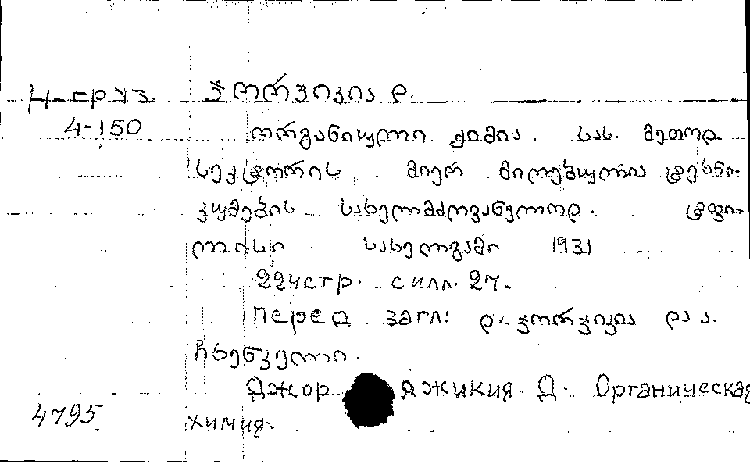 Ц-груз ჯორჯიკია დ.
4-150 ორგანიული ქიმია. სას. მეთოდ.
სექტორის მიერ მიღებულია ტეხნი-
კუმების სახელმძღვანელოდ. ტფი-
ლისი სახელგამი 1931
224стр. силл. 27.
Перед загл: დ. ჯორჯიკია და ა.
ჩხენკელი.
Джор джикия Д. Органическая
4795 химия.